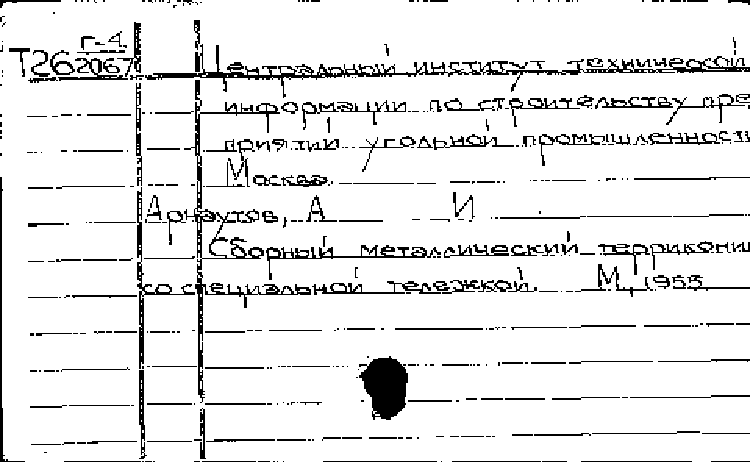 Г-4
Т262067 Центральный институт технической
информации по строительству пре
приятий угольной промышленност
Москва.
Арнаутов, А И
Сборный металлический террикони
со специальной тележкой. М, 1955